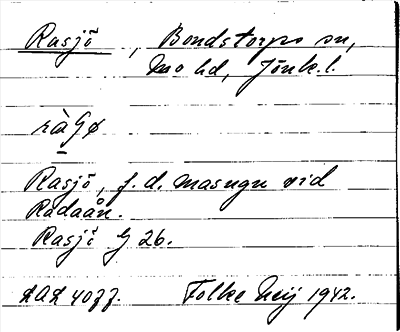 Rasjö, Bondstorps sn,
Mo hd, Jönk. l.
Rasjö, f. d. masugn vid
Rådaån.
Rasjö G 26.
Folke Neij 1942.